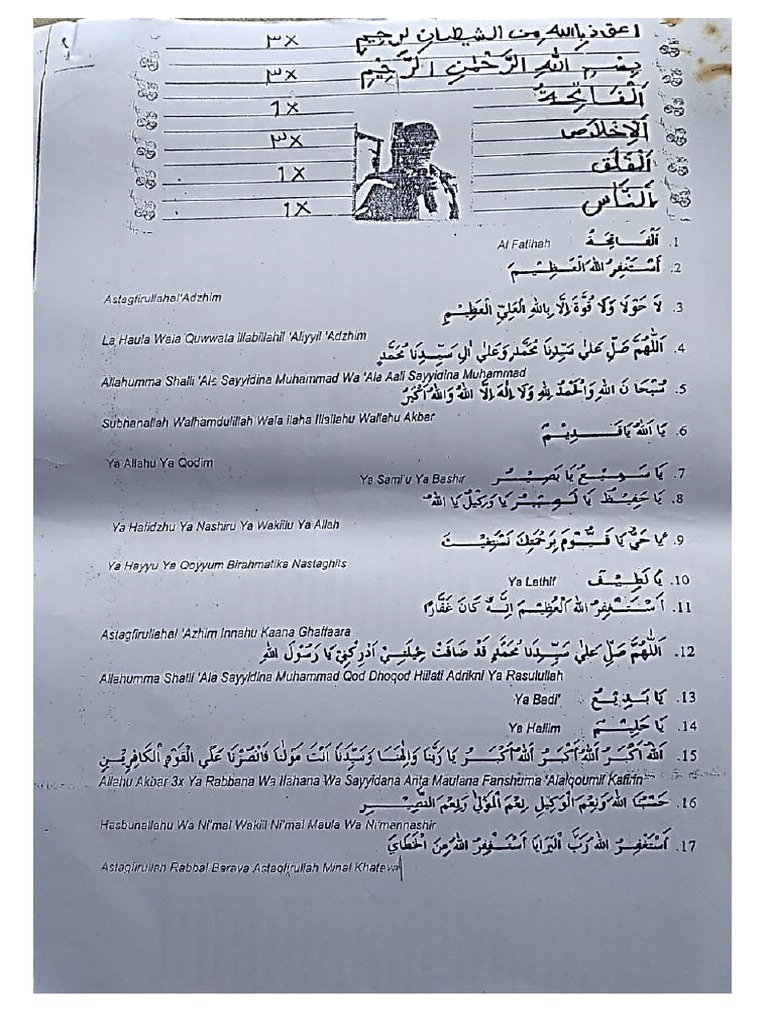 اعوذ بالله من الشيطان لرجيم ٣x
بِسْمِ اللهِ الرَّحْمٰنِ الرَّحِيْمِ ٣x
اَلْفَاتِحَةُ 1x
اَلْاِخْلَاصِ ٣x
اَلْفَلَقِ 1x
اَلنَّاسِ 1x
1. اَلْفَاتِحَةُ Al Fatihah
2. اَسْتَغْفِرُ اللهَ الْعَظِيْمَ
Astagfirullahal'Adzhim
3. لَا حَوْلَا وَلَا قُوَّةَ اِلَّا بِاللهِ الْعَلِيِّ الْعَظِيْمِ
La Haula Wala Quwwata Illabillahil 'Aliyyil 'Adzhim
4. اَللّٰهُمَّ صَلِّ عَلٰى سَيِّدِنَا مُحَمَّدٍ وَعَلٰى اٰلِ سَيِّدِنَا مُحَمَّدٍ
Allahumma Shalli 'Ala Sayyidina Muhammad Wa 'Ala Aali Sayyidina Muhammad
5. سُبْحَانَ اللهِ وَالْحَمْدُ لِلّٰهِ وَلَا اِلٰهَ اِلَّا اللهُ وَاللهُ اَكْبَرُ
Subhanallah Walhamdulillah Wala ilaha Illallahu Wallahu Akbar
6. يَا اَللهُ يَا قَدِيْمُ
Ya Allahu Ya Qodim
7. يَا سَمِيْعُ يَا بَصِيْرُ Ya Sami'u Ya Bashir
8. يَا حَفِيْظُ يَا نَصِيْرُ يَا وَكِيْلُ يَا اَللهُ
Ya Hafidzhu Ya Nashiru Ya Wakiilu Ya Allah
9. يَا حَيُّ يَا قَيُّوْمُ بِرَحْمَتِكَ نَسْتَغِيْثُ
Ya Hayyu Ya Qoyyum Birahmatika Nastaghiis
10. يَا لَطِيْفُ Ya Lathif
11. اَسْتَغْفِرُ اللهَ الْعَظِيْمَ اِنَّهُ كَانَ غَفَّارًا
Astagfirullahal 'Azhim Innahu Kaana Ghaffaara
12. اَللّٰهُمَّ صَلِّ عَلٰى سَيِّدِنَا مُحَمَّدٍ قَدْ ضَاقَتْ حِيْلَتِيْ اَدْرِكْنِيْ يَا رَسُوْلَ اللهِ
Allahumma Shalli 'Ala Sayyidina Muhammad Qod Dhoqod Hiilati Adrikni Ya Rasulullah
13. يَا بَدِيْعُ Ya Badi'
14. يَا حَلِيْمُ Ya Haliim
15. اَللهُ اَكْبَرُ اَللهُ اَكْبَرُ اَللهُ اَكْبَرُ يَا رَبَّنَا وَاِلٰهَنَا وَسَيِّدَنَا اَنْتَ مَوْلٰنَا فَانْصُرْنَا عَلَى الْقَوْمِ الْكَافِرِيْنَ
Allahu Akbar 3x Ya Rabbana Wa Ilahana Wa Sayyidana Anta Maulana Fanshurna 'Alalqoumil Kafirin
16. حَسْبُنَا اللهُ وَنِعْمَ الْوَكِيْلُ نِعْمَ الْمَوْلٰى وَنِعْمَ النَّصِيْرُ
Hasbunallahu Wa Ni'mal Wakiil Ni'mal Maula Wa Ni'mannashir
17. اَسْتَغْفِرُ اللهَ رَبَّ الْبَرَايَا اَسْتَغْفِرُ اللهَ مِنَ الْخَطَايَا
Astagfirullah Rabbal Baraya Astagfirullah Minal Khataya